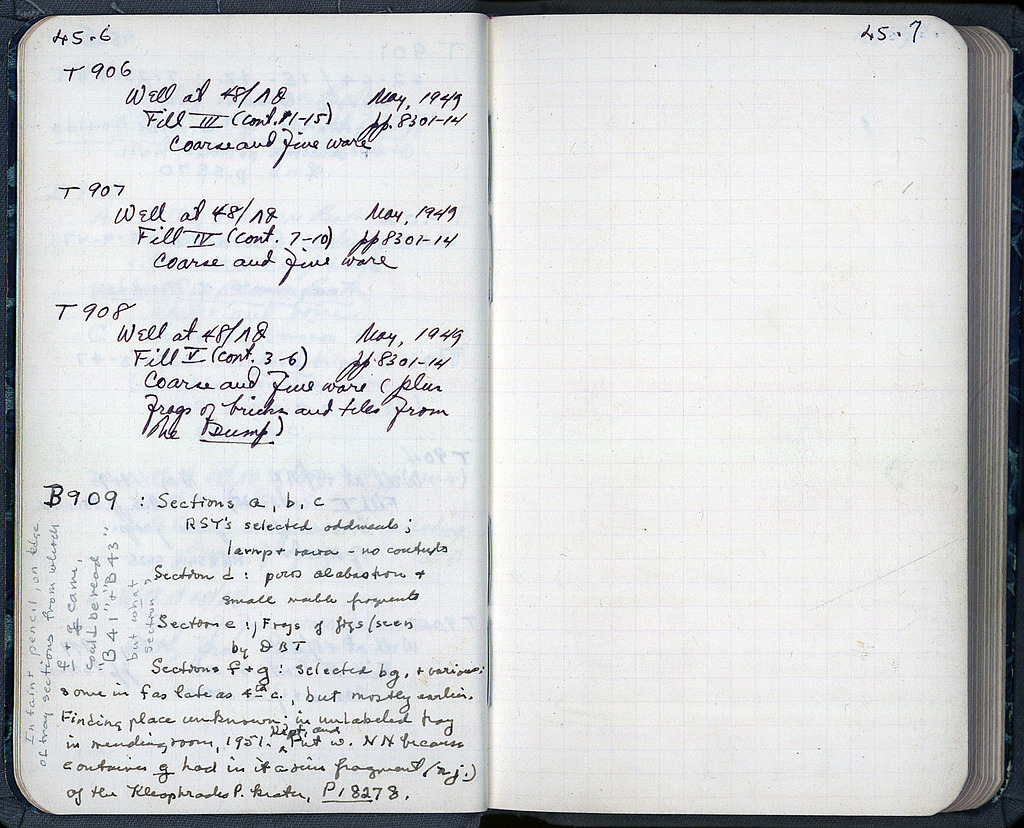 45·6
T 906
Well at 48/ΛΘ May, 1949
Fill III (cont. 11-15) pp. 8301-14
Coarse and fine ware
T 907
Well at 48/ΛΘ May, 1949
Fill IV (cont. 7-10) pp 8301-14
Coarse and fine ware
T 908
Well at 48/ΛΘ May, 1949
Fill V (cont. 3-6) pp. 8301-14
Coarse and fine ware (plus
frags of bricks and tiles from
the Dump)
B909 : Sections a, b, c
RSY's selected oddments;
lamp + - no contexts
Section d : poros alabastron +
small marble fragments
Section e : Frags of figs/seen
by DBT
Sections f + g : selected bg. + various;
some in f as late as 4th c., but mostly earlier.
Finding place unknown; in unlabeled tray
in mending room, 1951. Kept, and Put w. NN because
container g had in it a fragment (n.j.)
of the Kleophrades P. krater, P18278.
In faint pencil, on edge
of tray sections from which
f + g came,
could be read
"B41" + "B43",
but what
section,
45·7